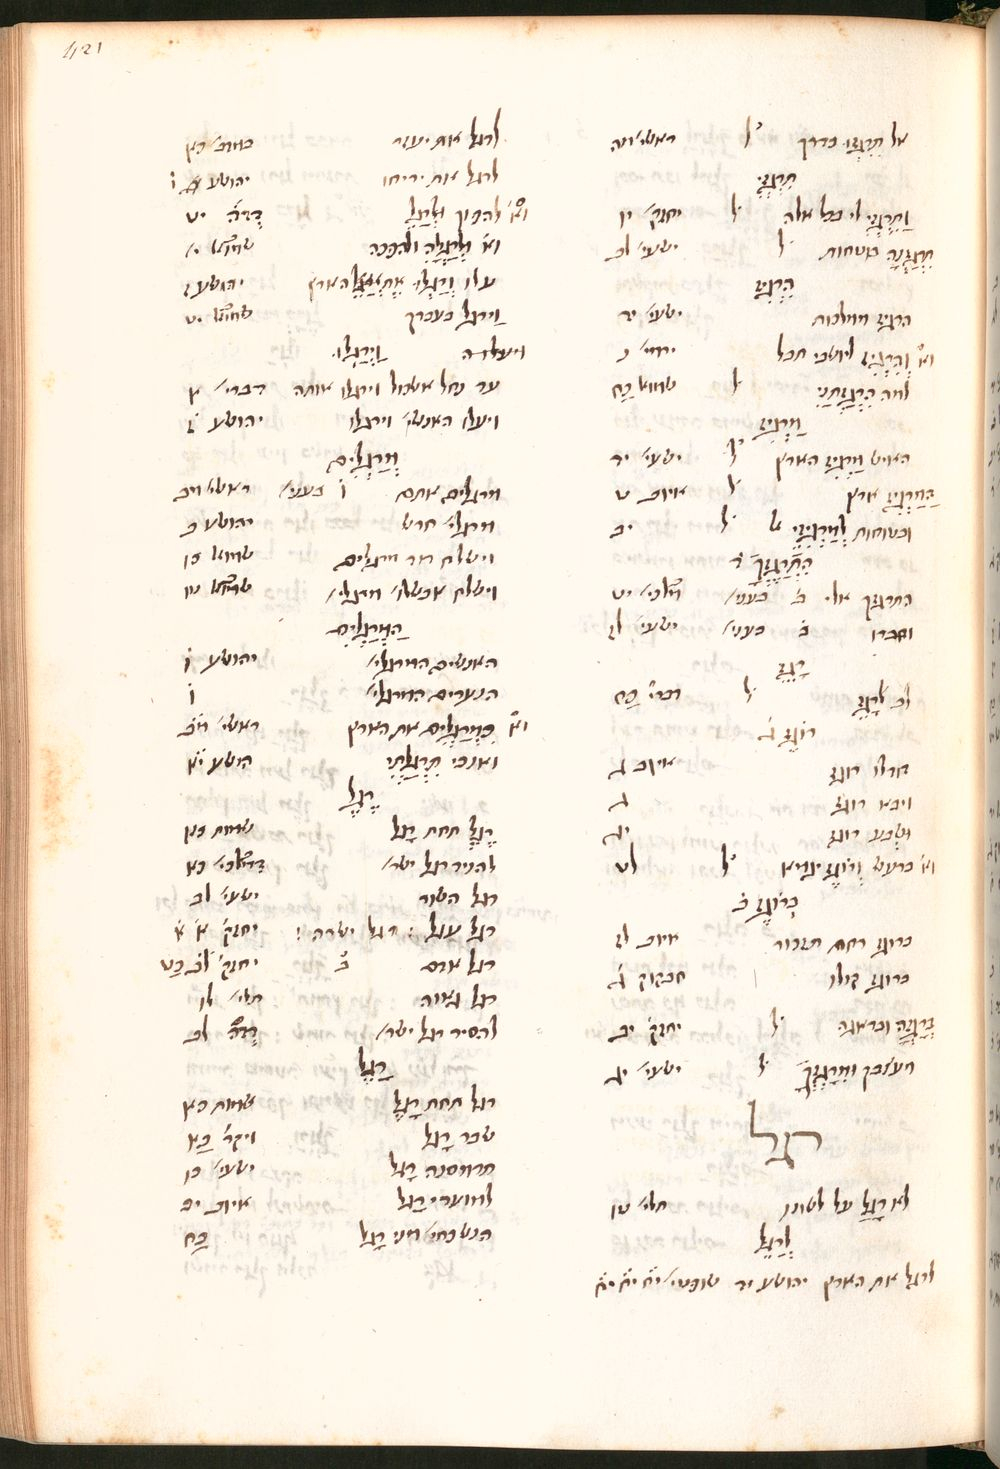 421
אל תִרְגְּזוּ בדרך ל ראשי׳ מה
תִרְגְּזִי
וַתִּרְגְּזִי לי בכל אלה ל יחזק׳ יו
תִרְגַּזְנָה בטחות ל ישעי׳ לב
הִרְגִיז
הרגיז ממלכות ישעי׳ יד
וא׳ וְהִרְגִיז ליושבי תבל ירמי׳ נ
למה הִרְגַזְתַּנִי ל שמוא כח
מַרְגִיז
האיש מַרְגִיז הארץ ל ישעי׳ יד
הַמַּרְגִיז ארץ ל איוב ט
ובטוחות לְמַרְגִיזֵי אל ל יב
הִתְרַגֶּזְךָ ד
התרגזך אלי ב בעני׳ מלכי׳ יט
וחברו ב בעני׳ ישעי׳ לז
רַגָּז
לב רַגָּז ל דברי׳ כח
רוֹגֶז ג
חדלו רוגז איוב ג
ויבא רוגז ג
ושבע רוגז יד
וא׳ ברעש וְרוֹגֶז יגמא ל לט
בְּרוֹגֶז ב
ברוגז רחם תזכור איוב לז
ברוגז קולו חבקוק ג
בְּרָגְזָה ובדאגה ל יחזק׳ יב
מעצבך וּמֵרָגְזֶךָ ל ישעי׳ יד
רגל
לא רָגַל על לשונו תלי׳ טו
לְרַגֵּל
לרגל את הארץ יהושע יד שופטי׳ יח יח יח
לרגל את יעזר במדב׳ כא
לרגל את יריחו יהושע ו
וא׳ להפוך וּלְרַגֵּל דָּהָ יט
וא׳ וּלְרַגְּלָהּ ולהפכה שמוא׳ י
עלו וְרַגְּלוּ אֶת הארץ יהושע ז
וַיְרַגֵּל בעבדך שמוא׳ יט
ויעלו ה וַיְרַגְּלוּ
עד נחל אשכול וירגלו אותה דברי׳ א
ויעלו האנשי׳ וירגלו יהושע ז
מְרַגְּלִים
מרגלים אתם ו בעני׳ ראשי׳ מב
מרגלי׳ חרש יהושע ב
וישלח דוד מרגלים שמוא כו
וישלח אבשלו׳ מרגלי׳ שמוא׳ טו
הַמְרַגְּלִים
האנשים המרגלי׳ יהושע ו
הנערים המרגלי׳ ו
וא׳ כִּמְרַגְּלִים את הארץ ראשי׳ מב
ואנכי תִרְגַּלְתִּי הושע יא
רֶגֶל
רֶגֶל תחת רָגֶל שמות כא
להניד רגל ישר׳ מלכי׳ כא
רגל השור ישעי׳ לב
רגל עגל : רגל ישרה : יחזק׳ א א
רגל אדם ב יחזק׳ לב כט
רגל גאוה תלי׳ לו
להסיר רגל ישר׳ דָּהָ לב
רָגֶל
רגל תחת רָגֶל שמות כא
שבר רָגֶל ויקר׳ כא
תרמסנה רָגֶל ישעי׳ כו
למועדי רָגֶל איוב יב
הנשכחי׳ מני רָגֶל כח